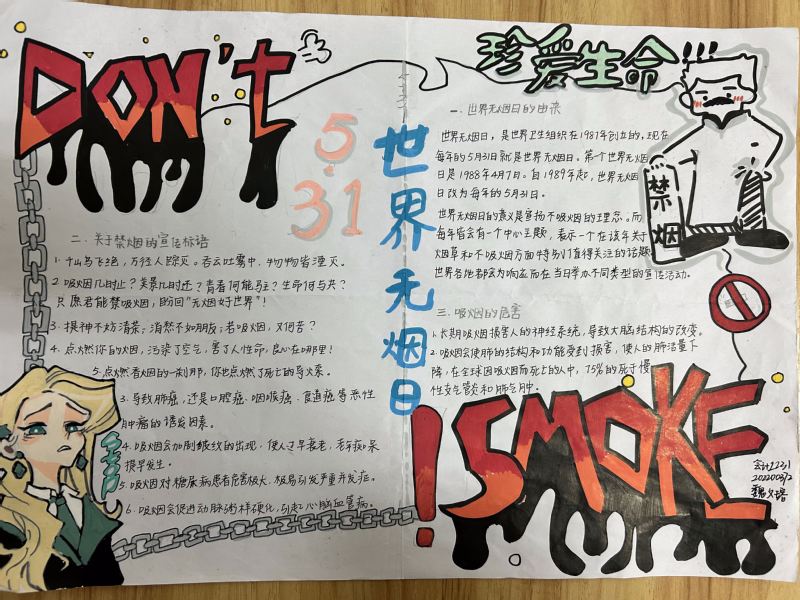 DON'T
珍爱生命
!!!
5.31
世界无烟日
一、世界无烟日的由来
世界无烟日，是世界卫生组织在1987年创立的，现在
每年的5月31日就是世界无烟日。第一个世界无烟
日是1988年4月7日。自1989年起，世界无烟
日改为每年的5月31日。
世界无烟日的意义是宣扬不吸烟的理念。而
每年皆会有一个中心主题，表示一个在该年关于
烟草和不吸烟方面特别值得关注的话题
世界各地都会为响应而在当日举办不同类型的宣传活动。
禁烟
二、关于禁烟的宣传标语
1、千山鸟飞绝，万径人踪灭。吞云吐雾中，物物皆湮灭。
2、吸烟几时止？美景几时还？青春何能驻？生命何与共？
只愿君能禁吸烟，的回"无烟好世界"！
3、提神不妨清茶；消愁不如朋友；若吸烟，又何苦？
4、点燃你的烟，污染了空气，害了人性命，良心在哪里！
5、点燃香烟的一刹那，你也点燃了死亡的导火索。
三、吸烟的危害
1、长期吸烟损害人的神经系统，导致大脑结构的改变。
2、吸烟会使肺的结构和功能受到损害，使人的肺活量下
降，在全球因吸烟而死亡的人中，75%的死于慢
性支气管炎和肺气肿。
3、导致肺癌，还是口腔癌、咽喉癌、食道癌等恶性
肿瘤的诱发因素。
4、吸烟会加剧皱纹的出现，使人过早衰老，毛
提早发生。
5、吸烟对糖尿病患者危害极大，极易引发严重并发症。
6、吸烟会促进动脉粥样硬化，引起心脑血管病。
STOP
!SMOKE
会计2231